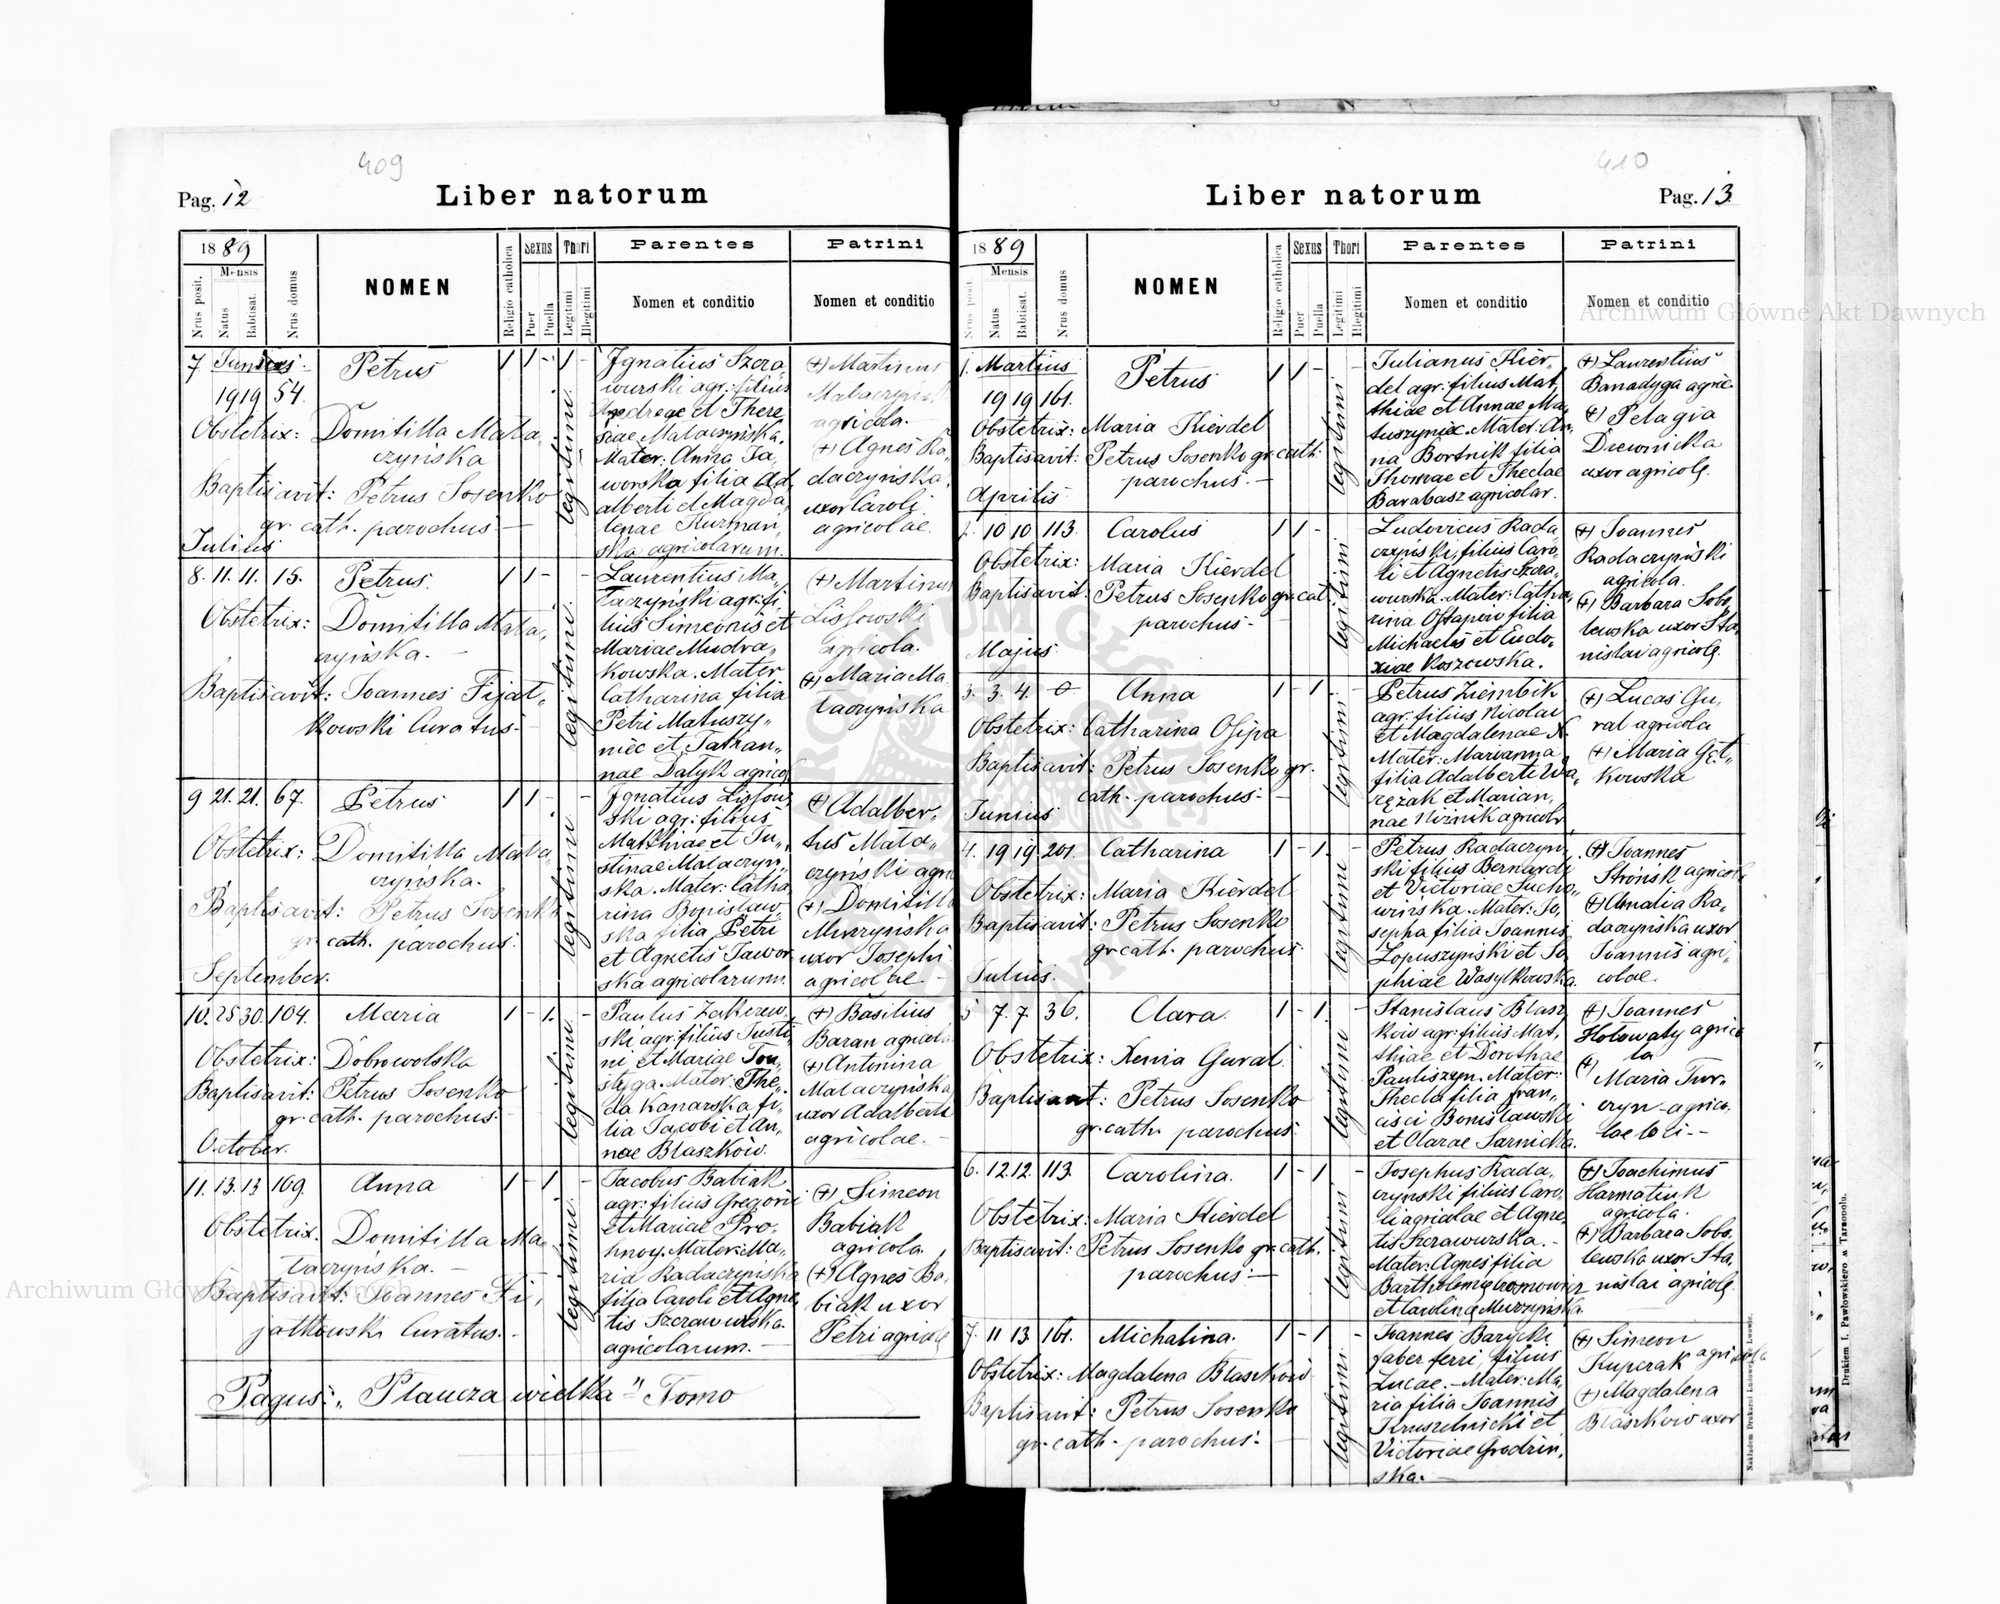 409
Pag. 12
Liber natorum
1889
Mensis
Nrus posit.
Natus
Babtisat.
Nrus domus
NOMEN
Religio catholica
Sexus
Puer
Puella
Thori
Legitimi
Illegitimi
Parentes
Nomen et conditio
Patrini
Nomen et conditio
7 Junius:
19 19 54.
Petrus
1 1 - 1 -
legitimi
Obstetrix: Domitilla Mała„
czyńska
Baptisavit: Petrus Sosenko
gr. cath. parochus.—
Ignatius Szcra„
wurski agr: filius
Andreae et There
siae Małaczyńska.
Mater: Anna Ja„
worska filia Ad„
alberti et Magda„
lenae Kurmań„
ska agricolarum.
(+) Martinus
agricola.
(+) Agnes Ra„
daczyńska
uxor Caroli
agricolae.
Julius
8. 11. 11. 15. Petrus. 1 1 -
legitimi
Obstetrix: Domitilla Mała„
czyńska.—
Baptisavit: Joannes Fijał„
kowski Curatus.—
Laurentius Ma„
łaczyński agr: fi„
lius Simeonis et
Mariae Mudra„
kowska. Mater
Catharina filia
Petri Matuszy„
niec et Tatian„
nae Datyk agricol
(+) Martinus
Lissowski
agricola.
(+) Maria Ma„
łaczyńska
9 21. 21. 67. Petrus 1 1 - -
legitimi
Obstetrix: Domitilla Mała„
czyńska.
Baptisavit: Petrus Sosenko
gr. cath. parochus.
Ignatius Lissow„
ski agr: filius
Matthiae et Ju„
stinae Małaczyń„
ska. Mater: Catha„
rina Bonisław„
ska filia Petri
et Agnetis Jawor„
ska agricolarum.
(+) Adalber„
tus Mała„
czyński agri
(+) Domitilla
Murzyńska
uxor Josephi
agricolae.—
September.
10. 25 30. 104. Maria 1 - 1. -
legitimi
Obstetrix: Dobrowolska
Baptisavit: Petrus Sosenko
gr. cath. parochus.
Paulus Zakrzew„
ski agr: filius Justi„
ni et Mariae Tou„
styga. Mater: The„
da Kanarska fi„
lia Jacobi et An„
nae Błaszków.
(+) Basilius
Baran agricola
(+) Antonina
Małaczyńska
uxor Adalberti
agricolae.—
October.
11. 13. 13 109. Anna 1 - 1 -
legitimi.
Obstetrix. Domitilla Ma„
łaczyńska.—
Baptisavit: Joannes Fi„
jałkowski Curatus.—
Jacobus Babiak
agr: filius Gregorii
et Mariae Pro„
hnoy. Mater: Ma„
ria Radaczyńska
filia Caroli et Agne„
tis Szcrawurska.
agricolarum.—
(+) Simeon
Babiak
agricola.
(+) Agnes Ba„
biak uxor
Petri agricolae
Pagus: „Płaucza wielka" Tomo
410
Liber natorum
Pag. 13
1889
Mensis
Nrus posit
Natus
Babtisat.
Nrus domus
NOMEN
Religio catholica
Sexus
Puer
Puella
Thori
Legitimi
Illegitimi
Parentes
Nomen et conditio
Patrini
Nomen et conditio
1. Martius
19 19 161. Petrus 1 1 - -
legitimi
Obstetrix: Maria Kierdel
Baptisavit: Petrus Sosenko gr. cath.
parochus.—
Julianus Kier„
del agr: filius Mat„
thiae et Annae Ma„
tuszyniec. Mater: An„
na Bortnik filia
Thomae et Theclae
Barabasz agricolar.
(+) Laurentius
Banadyga agric.
(+) Pelagia
Drewnicka
uxor agricolę.
Aprilis
2. 10 10 113. Carolus 1 1 -
legitimi
Obstetrix: Maria Kierdel
Baptisavit: Petrus Sosenko gr. cat.
parochus.—
Ludovicus Rada„
czyński, filius Caro„
li et Agnetis Szcra„
wurska. Mater: Catha„
rina Ostapow filia
Michaelis et Eudo„
xiae Koszowska.
(+) Joannes
Radaczyński
agricola.
(+) Barbara Sobo„
lewska uxor Sta„
nislai agricolę.
Majus
3. 3. 4. 0 Anna 1 - 1. -
legitimi
Obstetrix: Catharina Osipa
Baptisavit: Petrus Sosenko gr.
cath. parochus.—
Petrus Ziembik
agr: filius Nicolai
et Magdalenae X.
Mater: Marianna
filia Adalberti Wa„
rężak et Marian„
nae Niżnik agricolr
(+) Lucas Gu„
ral agricola
(+) Maria Gęt„
kowska
Junius
4. 19 19. 201. Catharina 1 - 1. -
legitimi
Obstetrix: Maria Kierdel
Baptisavit: Petrus Sosenko
gr. cath. parochus
Petrus Radaczyń„
ski filius Bernardi
et Victoriae Sucho„
wińska. Mater: Jo„
sepha filia Joannis
Łopuszyński et So
phiae Wasylkowska.
(+) Joannes
Strońsk agricol
(+) Amalia Ra„
daczyńska uxor
Joannis agri„
colae.
Julius.
5 7. 7. 36. Clara. 1 - 1. -
legitimi
Obstetrix: Xenia Gural
Baptisavit: Petrus Sosenko
gr. cath. parochus.
Stanislaus Błasz
ków agr: filius Mat„
thiae et Dorothae
Pauliszyn. Mater:
Thecla filia Fran„
cisci Bonisławski
et Clarae Sarnicka.
(+) Joannes
Hołowaty agrico
la
(+) Maria Tur„
czyn - agrico„
lae loci.—
6. 12. 12. 113. Carolina. 1 - 1 -
legitimi
Obstetrix: Maria Kierdel
Baptisavit: Petrus Sosenko gr. cath.
parochus.—
Josephus Rada„
czyński filius Caro„
li agricolae et Agne„
tis Szcrawurska.—
Mater: Agnes filia
et Carolinę Murzyńska
(+) Joachimus
Harmatiuk
agricola.
(+) Barbara Sobo„
lewska uxor Sta„
nislai agricolę.
7. 11 13. 161. Michalina. 1 - 1 -
legitimi
Obstetrix: Magdalena Błaszków
Baptisavit: Petrus Sosenko
gr. cath. parochus.
Joannes Barycki
faber ferri, filius
Lucae.— Mater: Ma„
ria filia Joannis
Kruszelnicki et
Victoriae Grodziń„
ska.—
(+) Simeon
Kupczak agricola
(+) Magdalena
Błaszków uxor
Drukiem I. Pawłowskiego w Tarnopolu.
Archiwum Główne Akt Dawnych
Archiwum Główne Akt Dawnych